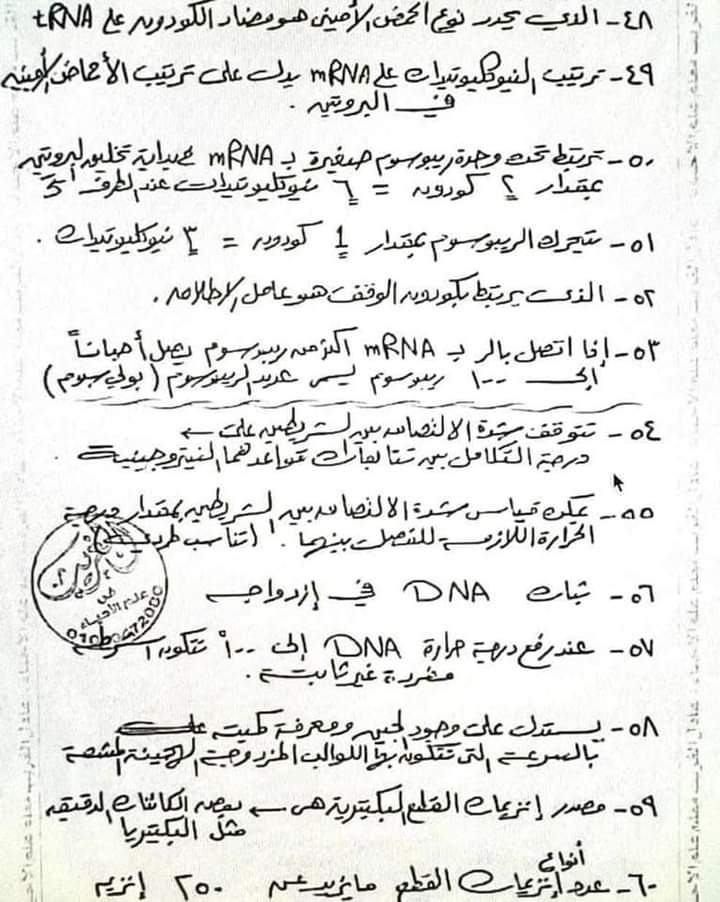 ٤٨- الذي يحدد نوع الحمض الأميني هو مضاد الكودون على tRNA
٤٩- ترتيب النيوكليوتيدات على mRNA يدل على ترتيب الأحماض الأمينية
في البروتين .
٥٠- ترتبط تحت وحدة ريبوسوم صغيرة بـ mRNA في بداية تخليق البروتين
بمقدار ٢ كودون = ٦ نيوكليوتيدات عند الطرف 5
٥١- يتحرك الريبوسوم بمقدار 1 كودون = ٣ نيوكليوتيدات .
٥٢- الذى يرتبط بكودون الوقف هو عامل الإطلاق .
٥٣- إذا اتصل بالـ mRNA أكثر من ريبوسوم يصل أحياناً
إلى ١٠٠ ريبوسوم يسمى عديد الريبوسوم (بولي سوم)
٥٤- تتوقف شدة الالتصاق بين الشريطين على ←
درجة التكامل بين تتابعات قواعدهما النيتروجينية .
٥٥- يمكن قياس شدة الالتصاق بين الشريطين بمقدار درجة
الحرارة اللازمة للفصل بينهما . (تناسب
٥٦- ثبات DNA في إزدواجه
٥٧- عند رفع درجة حرارة DNA إلى ١٠٠° تتكون
مفردة غير ثابتة .
٥٨- يستدل على وجود لجين ومعرفة كميته
بالسرعة التى تتكون بها اللوالب المزدوجة المشعة
٥٩- مصدر إنزيمات القطع البكتيرية هى ← بعض الكائنات الدقيقه
مثل البكتيريا
أنواع
٦٠- عدد إنزيمات القطع ما يزيد عن ٢٥٠ إنزيم
فى
علم الأحياء